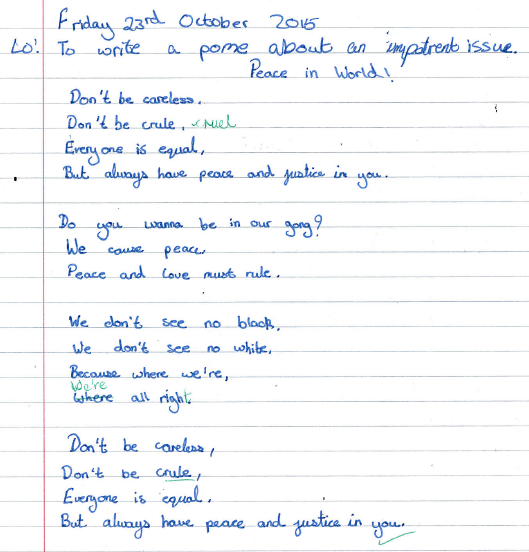 Friday 23rd October 2015
LO: To write a pome about an impotrent issue.
Peace in World!
Don't be careless.
Don't be crule, cruel
Everyone is equal,
But always have peace and justice in you.
Do you wanna be in our gang?
We cause peace,
Peace and love must rule.
We don't see no black,
We don't see no white,
Because where we're,
We're
Where all right.
Don't be careless,
Don't be crule,
Everyone is equal.
But always have peace and justice in you.